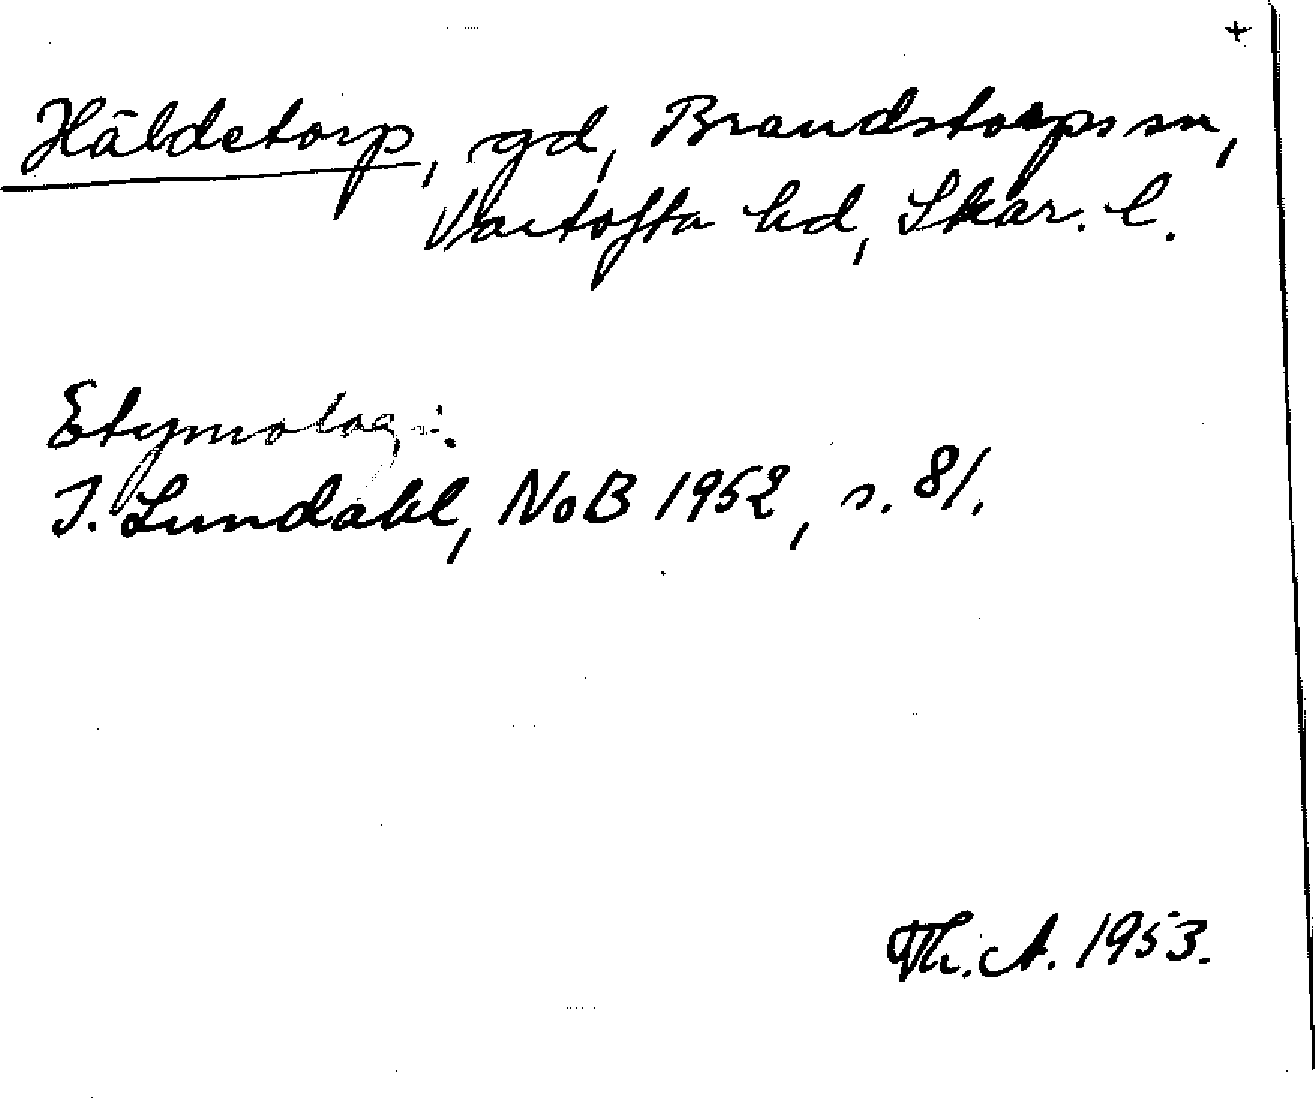 +
Häldetorp, gd, Brandstorps sn,
Vartofta hd, Skar. l.
Etymologi:
I. Lundahl, NoB 1952, s. 81.
Th. A. 1953.